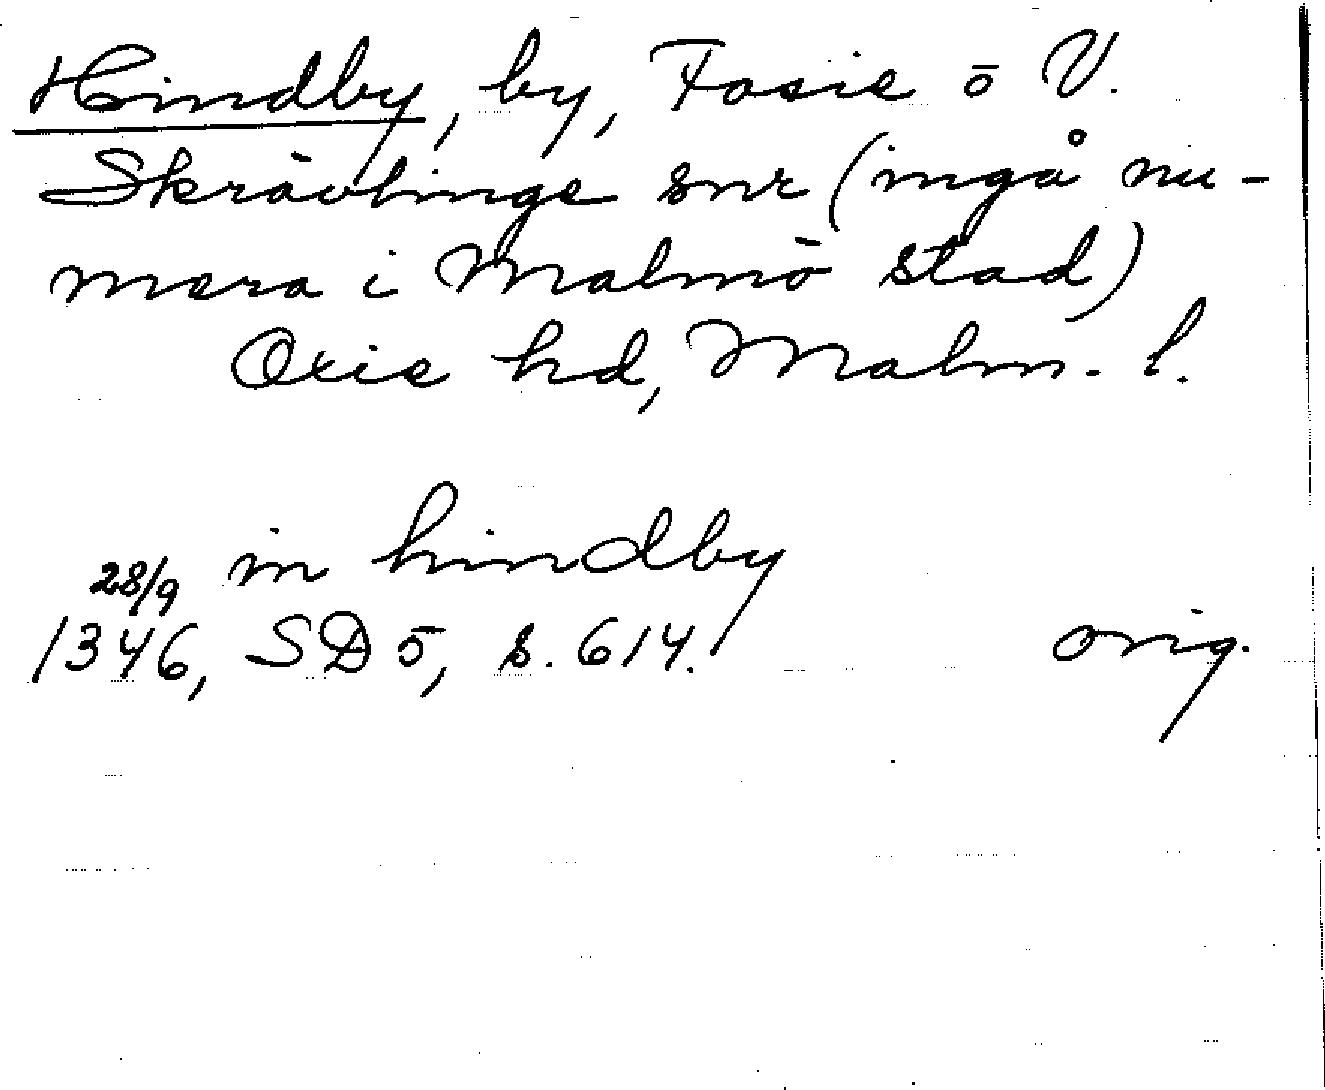 Hindby, by, Fosie o V.
Skrävlinge snr (ingå nu-
mera i Malmö stad)
Oxie hd, Malm. l.
28/9 in hindby
1346, SD 5, s. 614. orig.